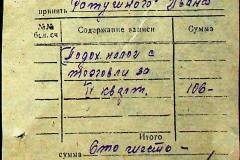 принять Ратушного Ивана
№№ бал. сч. Содержание записи Сумма
Подох. налог с
торговли за
IV кварт. 106-
Итого
сумма Сто шесть-